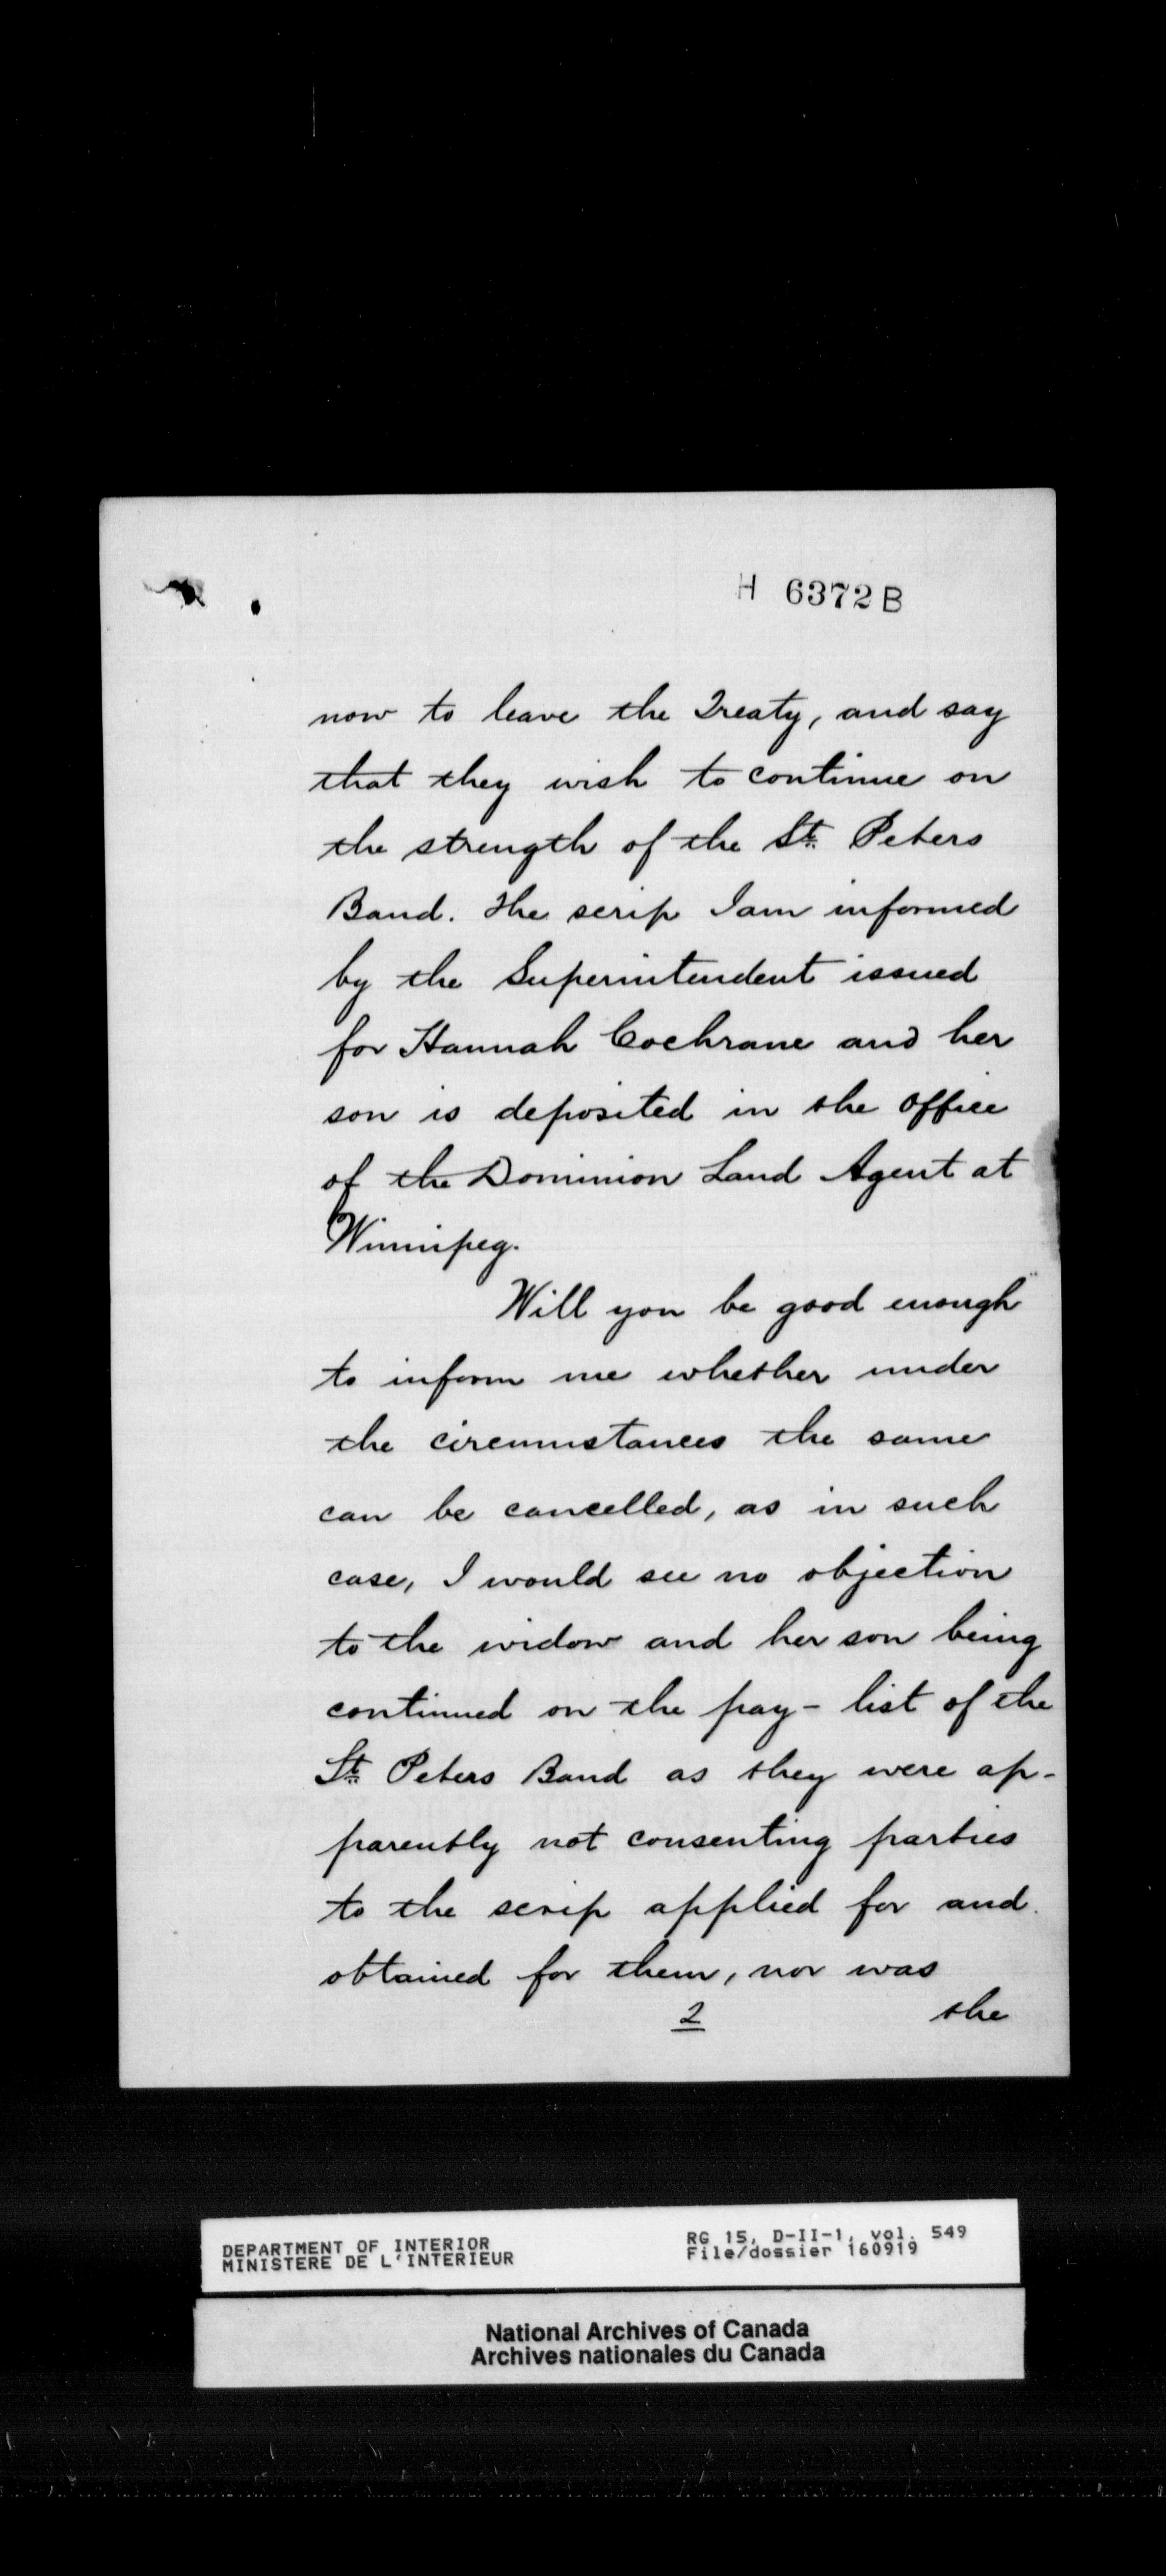 H 6372 B
now to leave the Treaty, and say
that they wish to continue on
the strength of the St. Peters
Band. The scrip I am informed
by the Superintendent issued
for Hannah Cochrane and her
son is deposited in the office
of the Dominion Land Agent at
Winnipeg.
Will you be good enough
to inform me whether under
the circumstances the same
can be cancelled, as in such
case, I would see no objection
to the widow and her son being
continued on the pay-list of the
St. Peters Band as they were ap-
parently not consenting parties
to the scrip applied for and
obtained for them, nor was
2 the
DEPARTMENT OF INTERIOR
MINISTERE DE L'INTERIEUR
RG 15, D-II-1, vol. 549
File/dossier 160919
National Archives of Canada
Archives nationales du Canada